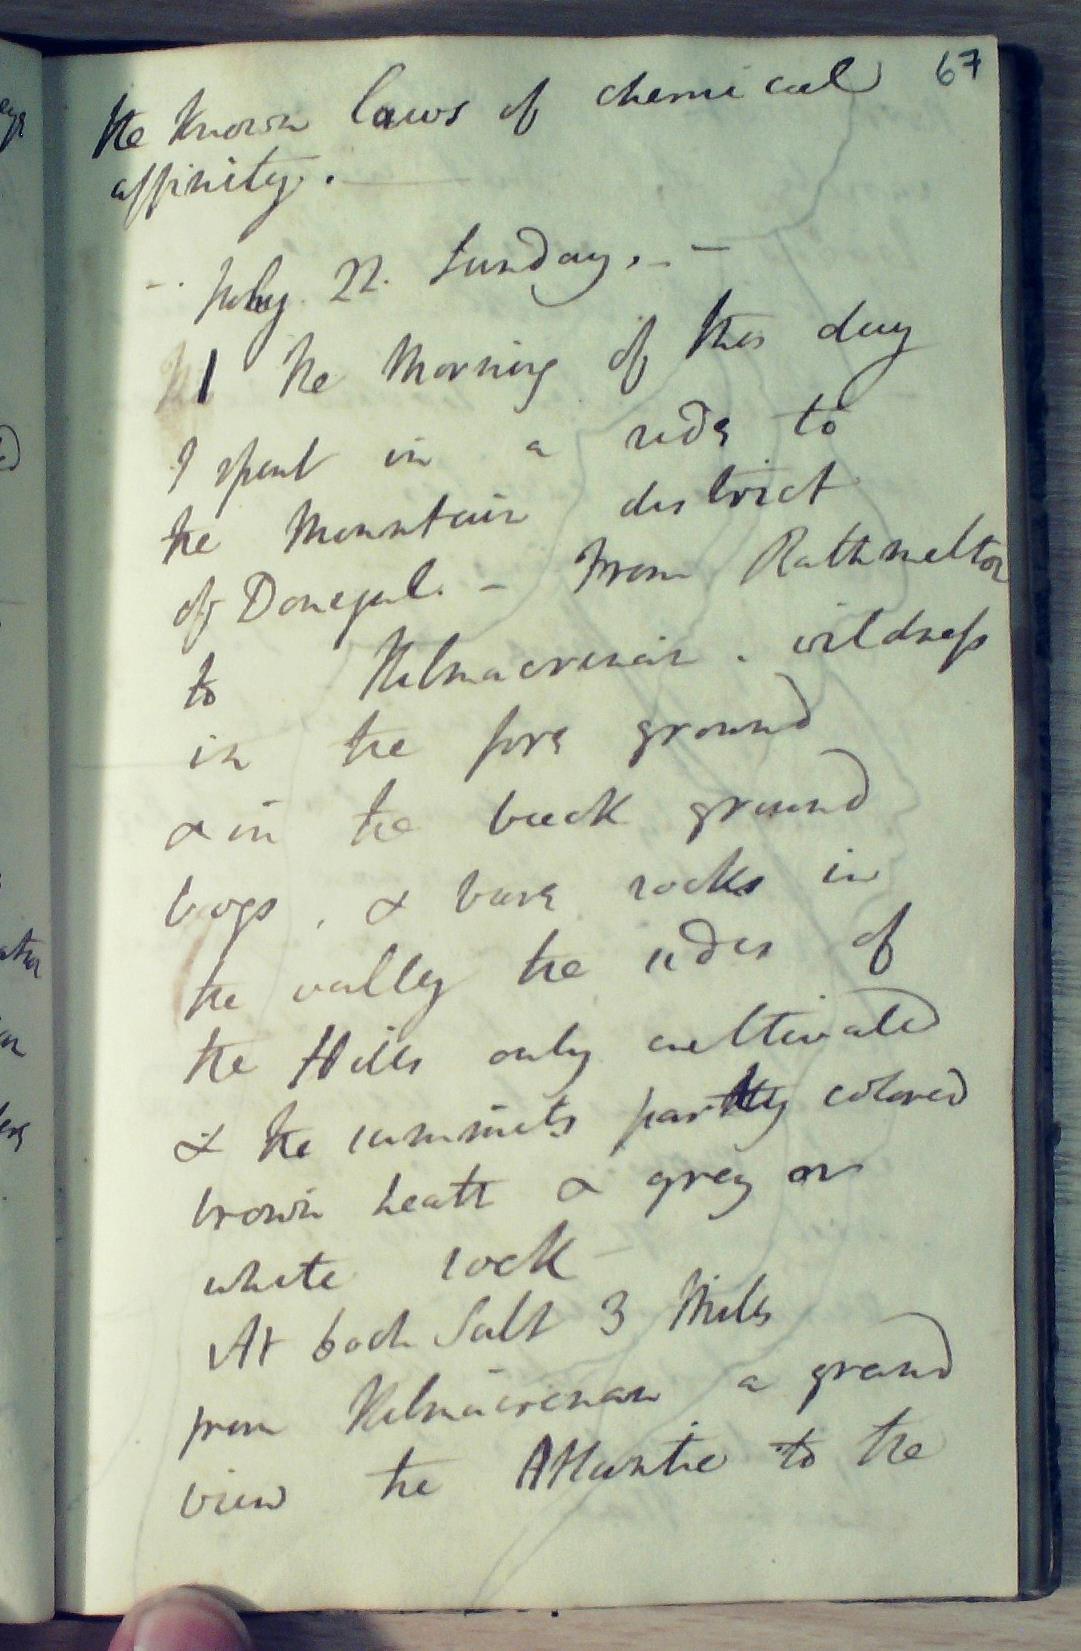 67
the known laws of chemical
affinity. 
-. July. 22. Sunday. - -
1 the Morning of this day
I spent in a ride to
the Mountain district
of Donegal. - From Rathmelton
to Kilmacrenan. wildness
in the fore ground
& in the back ground
bogs, & bare rocks in
the valley the sides of
the Hills only cultivated
& the summits partly colored
brown heath & grey or
white rock -
At Salt 3 Miles
from Kilmacrenan a grand
view the Atlantic to the